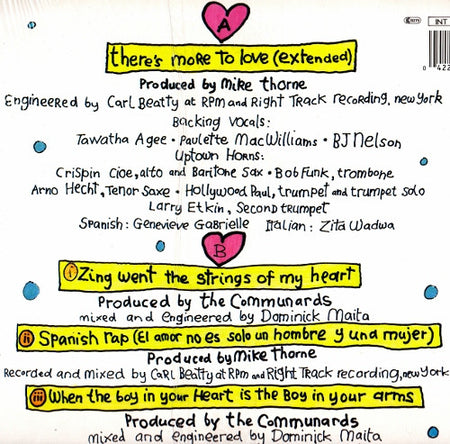 A
there's more to love (extended)
Produced by mike thorne
Engineered by Carl Beatty at RPM and Right Track recording, new york
Backing vocals:
Tawatha Agee • Paulette MacWilliams • BJ Nelson
Uptown Horns:
Crispin Cioe, alto and Baritone Sax • Bob Funk, trombone
Arno Hecht, Tenor Saxe • Hollywood Paul, trumpet and trumpet solo
Larry Etkin, Second trumpet
Spanish: Genevieve Gabrielle Italian: Zita Wadwa
B
i Zing went the strings of my heart
Produced by the Communards
mixed and engineered by Dominick Maita
ii Spanish rap (El amor no es solo un hombre y una mujer)
Produced by Mike Thorne
Recorded and mixed by Carl Beatty at RPM and Right Track recording, new york
iii When the boy in your Heart is the Boy in your arms
Produced by the Communards
mixed and engineered by Dominick Maita
INT
0 422